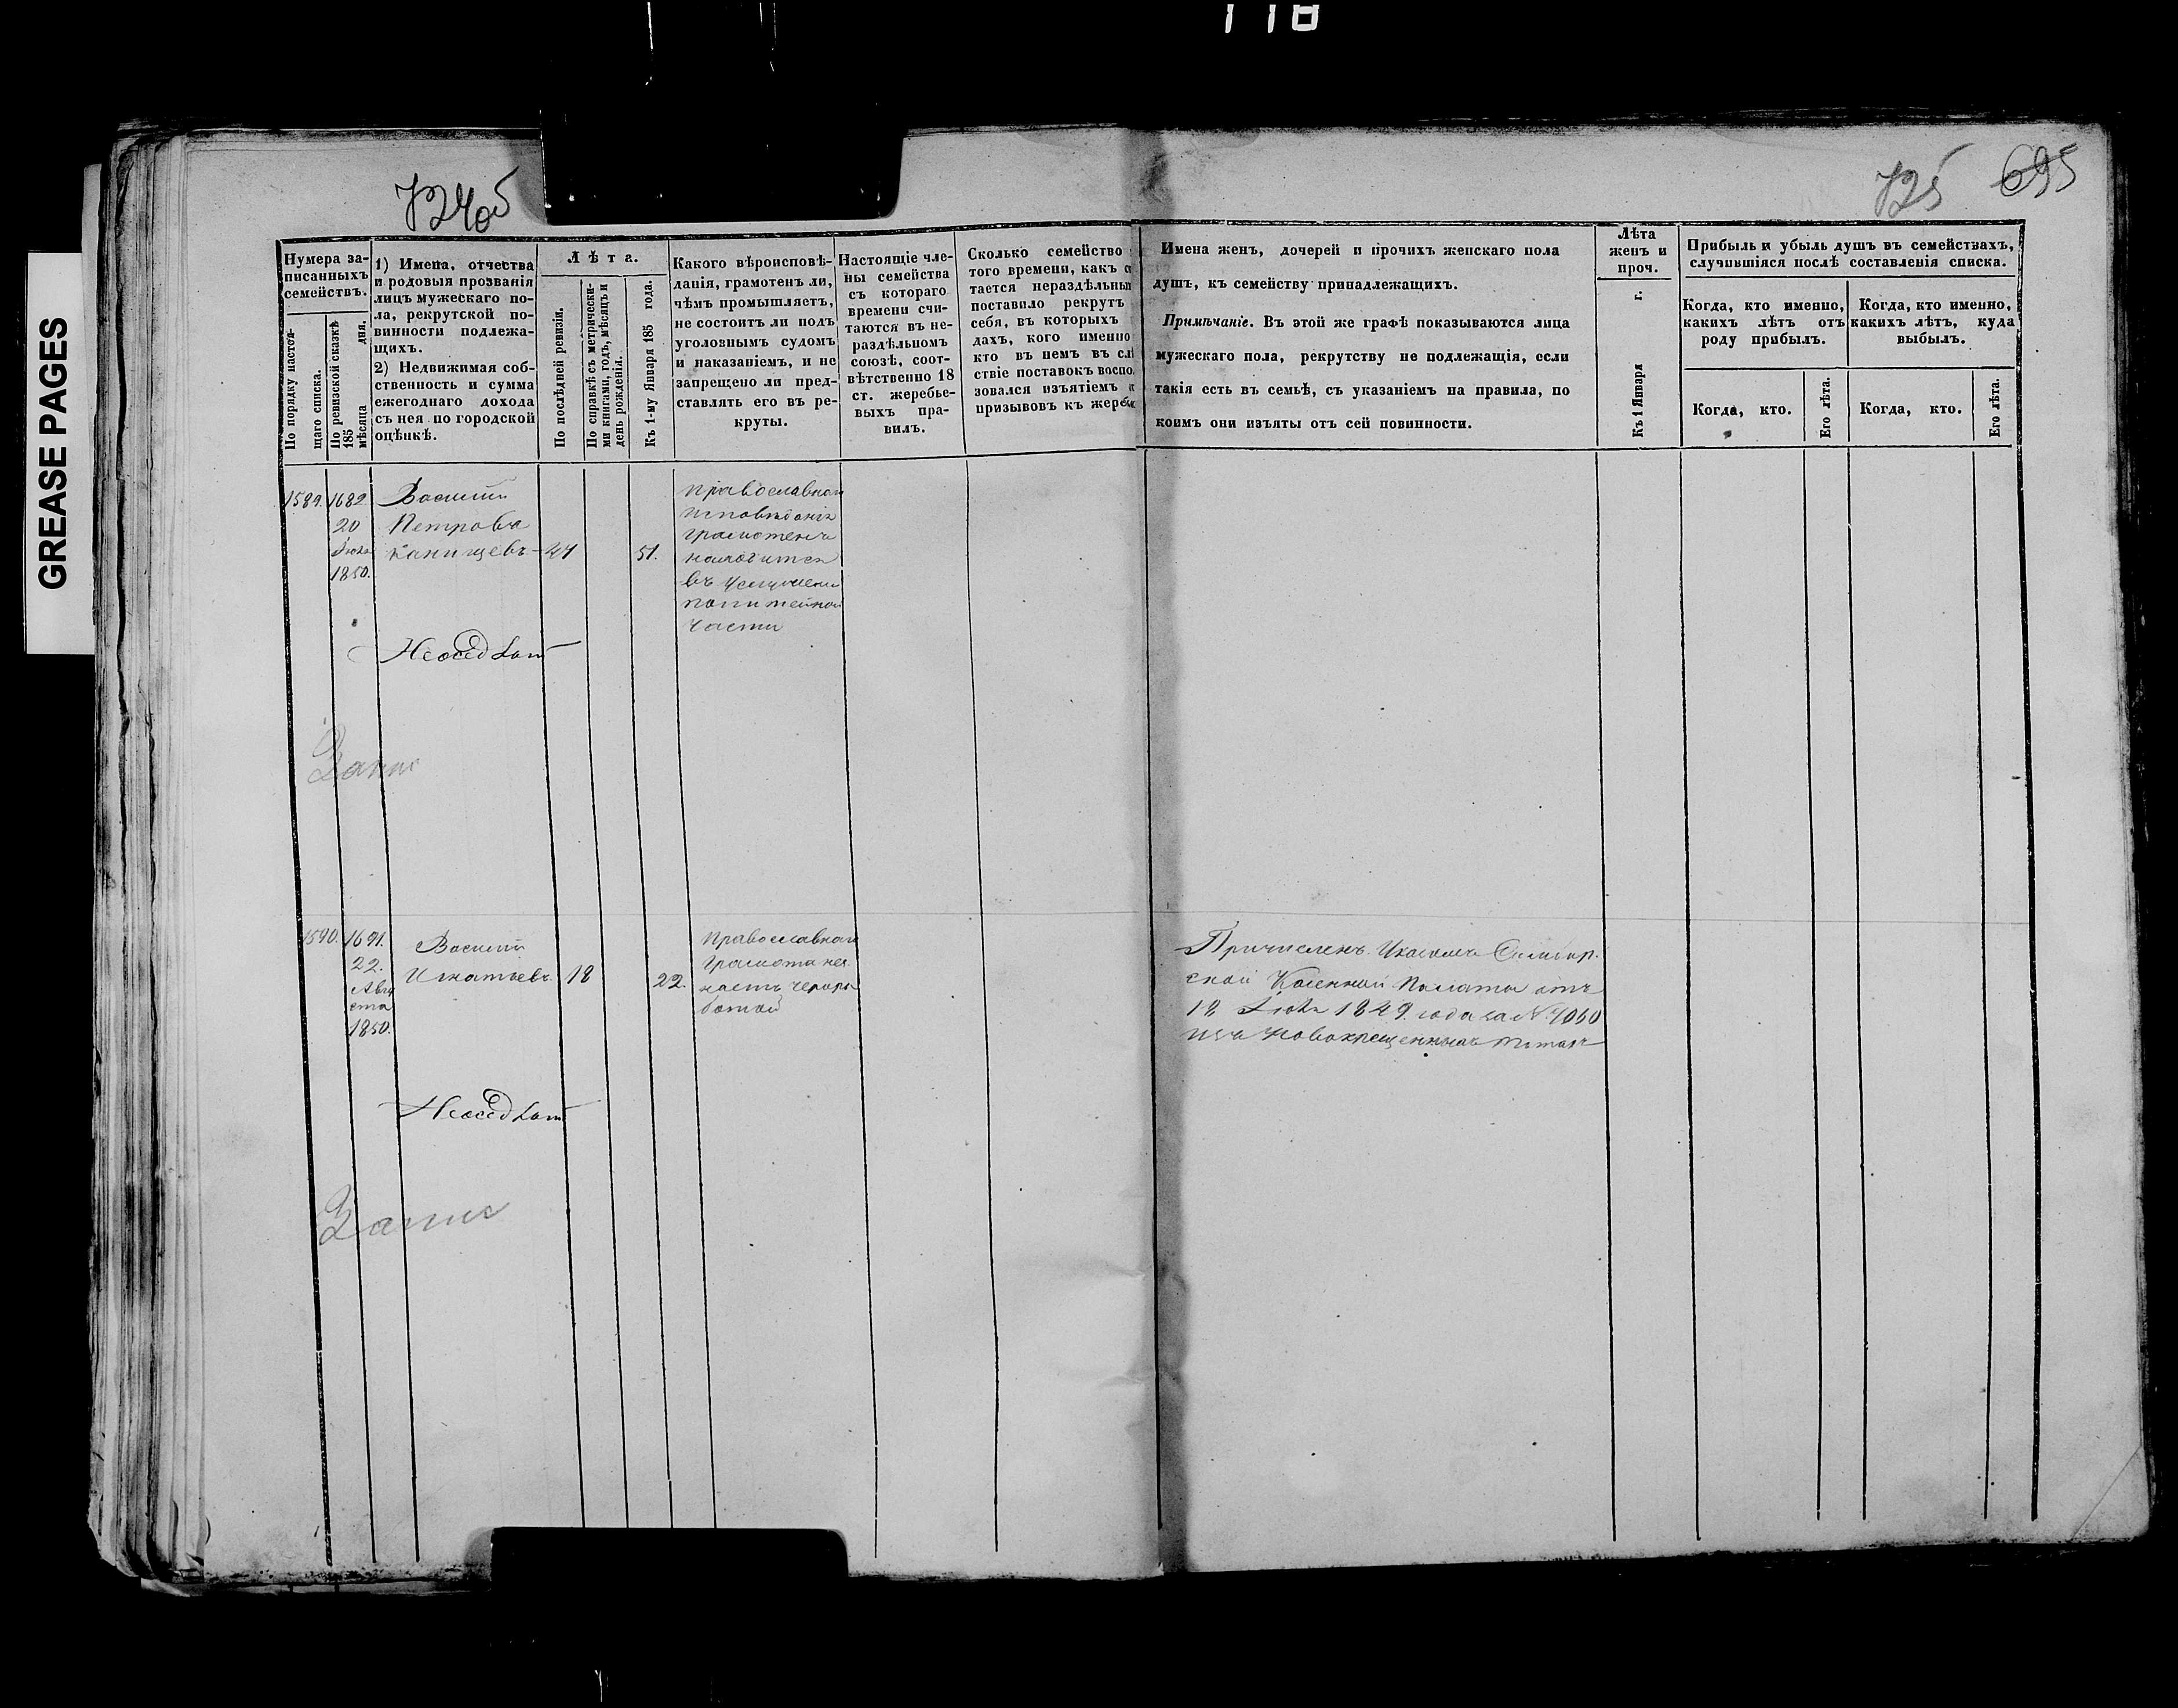 118
GREASE PAGES
724об
725 695
Нумера за-
писанныхъ
семействъ.
По порядку настоя-
щаго списка.
По ревизской сказкѣ
185
мѣсяца дня.
1) Имена, отчества
и родовыя прозванія
лицъ мужескаго по-
ла, рекрутской по-
винности подлежа-
щихъ.
2) Недвижимая соб-
ственность и сумма
ежегоднаго дохода
съ нея по городской
оцѣнкѣ.
Лѣта.
По послѣдней ревизіи.
По справкѣ съ метрически-
ми книгами, годъ, мѣсяцъ и
день рожденія.
Къ 1-му Января 185 года.
Какого вѣроисповѣ-
данія, грамотенъ ли,
чѣмъ промышляетъ,
не состоитъ ли подъ
уголовнымъ судомъ
и наказаніемъ, и не
запрещено ли пред-
ставлять его въ ре-
круты.
Настоящіе чле-
ны семейства
съ котораго
времени счи-
таются въ не-
раздѣльномъ
союзѣ, соот-
вѣтственно 18
ст. жеребье-
выхъ пра-
вилъ.
Сколько семейство
того времени, какъ с
тается нераздѣльны
поставило рекрутъ
себя, въ которыхъ
дахъ, кого именно
кто въ немъ въ сл
ствіе поставокъ воспо
зовался изъятіемъ
призывовъ къ жереб
Имена женъ, дочерей и прочихъ женскаго пола
душъ, къ семейству принадлежащихъ.
Примѣчаніе. Въ этой же графѣ показываются лица
мужескаго пола, рекрутству не подлежащія, если
такія есть въ семьѣ, съ указаніемъ на правила, по
коимъ они изъяты отъ сей повинности.
Лѣта
женъ и
проч.
Къ 1 Января г.
Прибыль и убыль душъ въ семействахъ,
случившіяся послѣ составленія списка.
Когда, кто именно,
какихъ лѣтъ отъ
роду прибылъ.
Когда, кто именно,
какихъ лѣтъ, куда
выбылъ.
Когда, кто.
Его лѣта.
Когда, кто.
Его лѣта.
1589. 1682
20
Іюля
1850.
Василій
Петровъ
Канищевъ 47 51.
православнаго
исповѣданія
грамотенъ
находится
въ услуженіи
питейной
части
1590. 1691.
22.
Авгу
ста
1850.
Василій
Игнатьевъ. 18 22.
Православнаго
грамота не
Причисленъ Указомъ Симбир-
ской Казенной Палаты отъ
18 Іюля 1849 года за № 7060
изъ Новокрещенныхъ татаръ